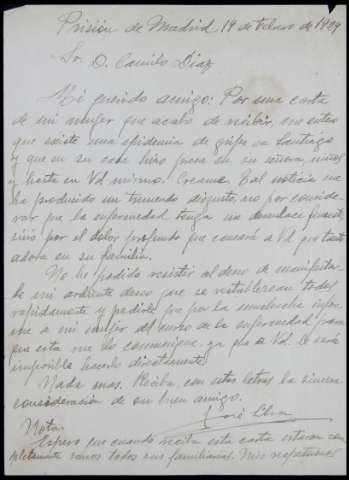 Prisión de Madrid 19 de Febrero de 1929
Sr. D. Camilo Díaz
Mi querido amigo: Por una carta
de mi mujer que acabo de recibir, me entero
que existe una epidemia de gripe en Santiago
y que en su casa hizo presa en su señora, niños
y hasta en Vd mismo. Créame. Tal noticia me
ha producido un tremendo disgusto, no por conside-
rar que la enfermedad tenga un desenlace funesto,
sino por el dolor profundo que causará a Vd que tanto
adora en su familia.
No he podido resistir al deseo de manifestar-
le mi ardiente deseo que se restablezcan todos
rapidamente y pedirle que por la muchacha infor-
me a mi mujer del curso de la enfermedad para
que esta me lo comunique, ya que a Vd. le será
imposible hacerlo directamente.
Nada mas. Reciba, con estas letras la sincera
consideración de su buen amigo.
José
Nota.
Espero que cuando reciba esta carta estaran com-
pletamente sanos todos sus familiares. Mis respetuosos